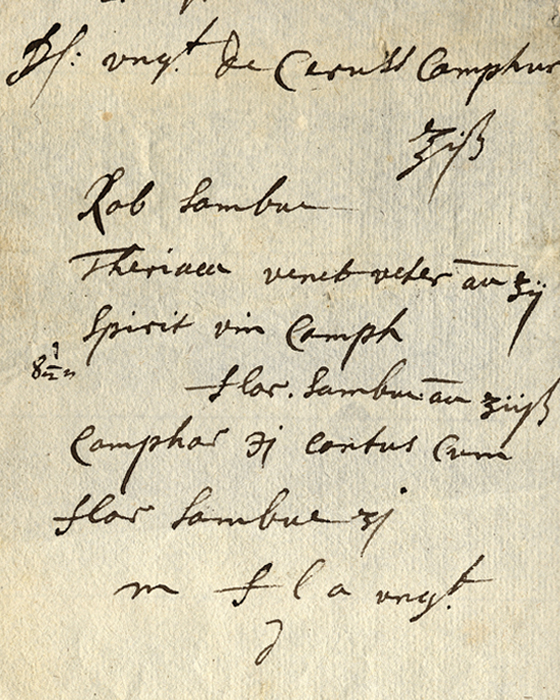 ℞: ungt de Ceruss Camphor
℥iß
Rob Sambuc
Theriaca venet veter an̄ ʒij
Spirit vin Camph
flor. Sambuc an̄ ʒiijß
Camphor ʒj contus cum
flor Sambuc ʒj
m f l a ungt